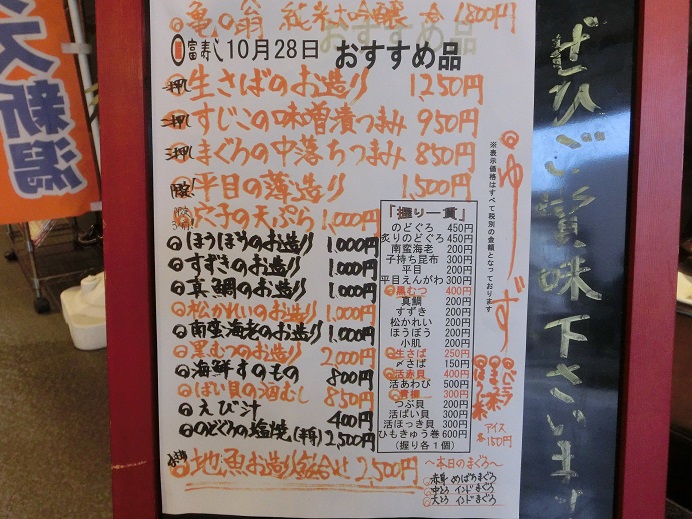 亀の翁 純米大吟醸 一合 1,800円
富寿し 10月28日 おすすめ品
一押し 生さばのお造り 1,250円
二押し すじこの味噌漬つまみ 950円
三押し まぐろの中落ちつまみ 850円
平目の薄造り 1,500円
穴子の天ぷら 1,000円
ほうぼうのお造り 1,000円
すずきのお造り 1,000円
真鯛のお造り 1,000円
松かれいのお造り 1,000円
南蛮海老のお造り 1,000円
黒むつのお造り 2,000円
海鮮すのもの 800円
ばい貝の酒むし 850円
えび汁 400円
のどぐろの塩焼(半身) 2,500円
地魚お造り盛合せ 2,500円
「握り一貫」
のどぐろ 450円
炙りのどぐろ 450円
南蛮海老 200円
子持ち昆布 300円
平目 200円
平目えんがわ 300円
黒むつ 400円
真鯛 200円
すずき 200円
松かれい 200円
ほうぼう 200円
小肌 200円
生さば 250円
〆さば 150円
活赤貝 400円
活あわび 500円
青柳 300円
つぶ貝 200円
活ばい貝 300円
活ほっき貝 300円
ひもきゅう巻 600円
(握り各1個)
※表示価格はすべて税別の金額となっております
ゆーず
バニラ
ほうじ茶
アイス
各150円
～本日のまぐろ～
赤身 めばちまぐろ
中とろ インドまぐろ
大とろ インドまぐろ
ぜひご賞味下さいませ
新潟